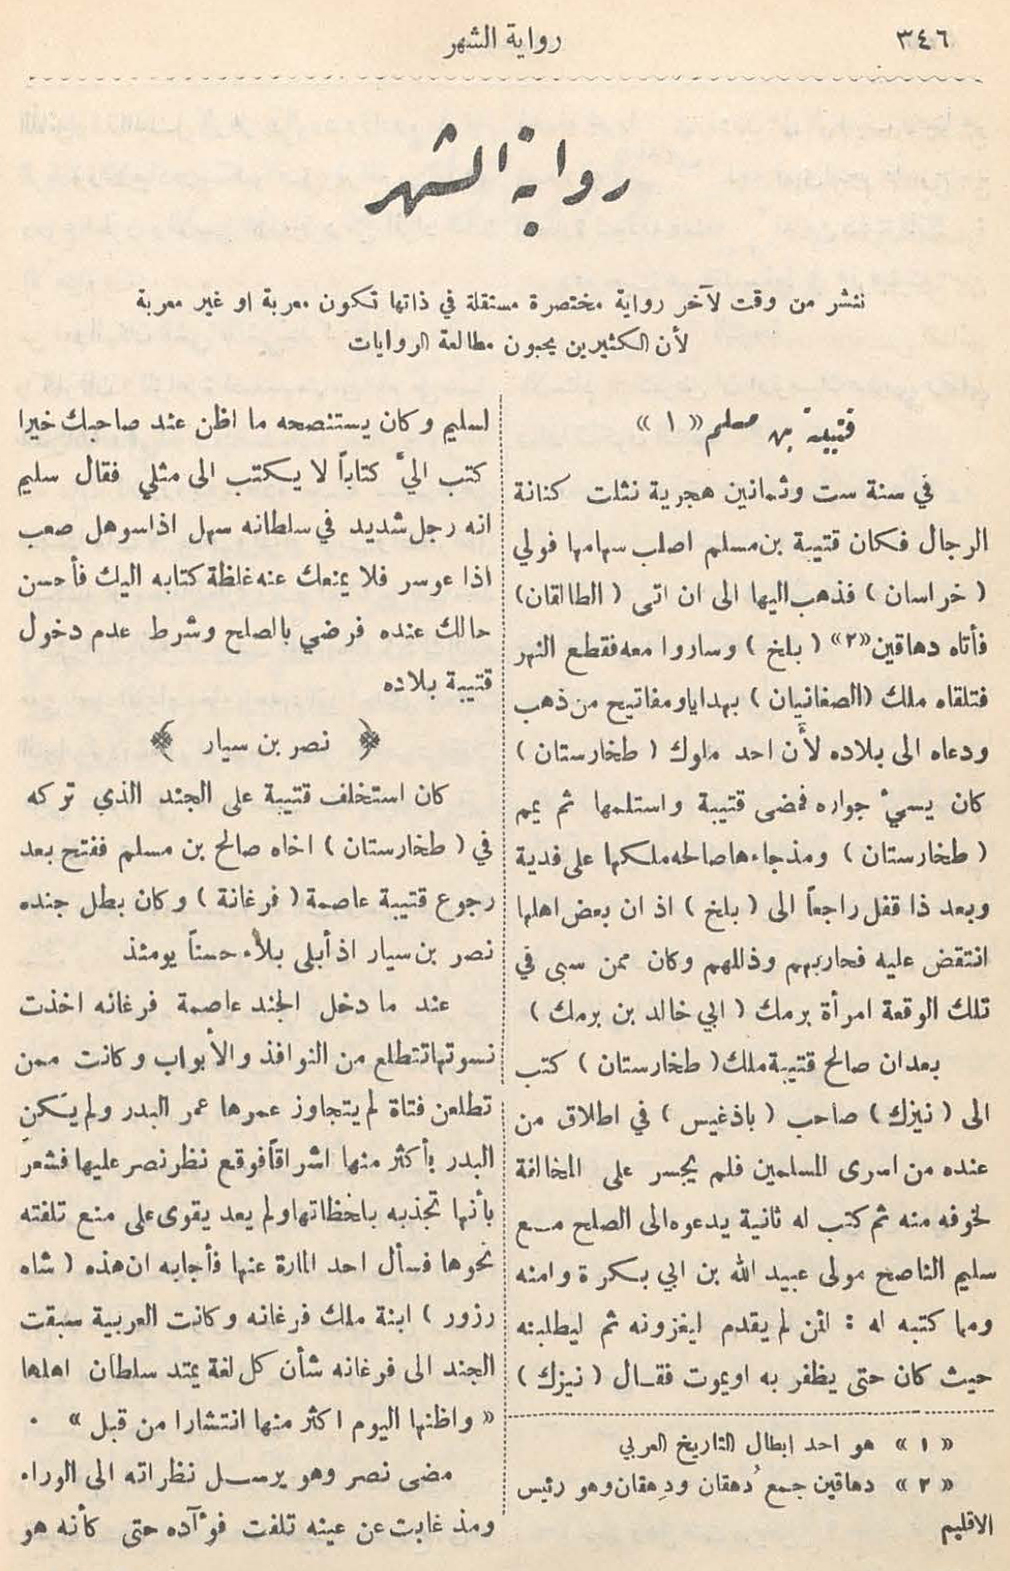 ٣٤٦
رواية الشهر
رواية الشهر
ننشر من وقت لآخر رواية مختصرة مستقلة في ذاتها تكون معربة او غير معربة
لأن الكثيرين يحبون مطالعة الروايات
قتيبة بن مسلم «١»
في سنة ست وثمانين هجرية نثلت كنانة
الرجال فكان قتيبة بن مسلم اصلب سهامها فولي
( خراسان ) فذهب اليها الى ان اتى ( الطالقان )
فأتاه دهاقين «٢» ( بلخ ) وساروا معه فقطع النهر
فتلقاه ملك ( الصغانيان ) بهدايا ومفاتيح من ذهب
ودعاه الى بلاده لأن احد ملوك ( طخارستان )
كان يسيء جواره فمضى قتيبة واستلمها ثم يمم
( طخارستان ) ومذ جاءها صالحه ملكها على فدية
وبعد ذا قفل راجعاً الى ( بلخ ) اذ ان بعض اهلها
انتقض عليه فحاربهم وذللهم وكان ممن سبى في
تلك الوقعة امرأة برمك ( ابي خالد بن برمك )
بعد ان صالح قتيبة ملك ( طخارستان ) كتب
الى ( نيزك ) صاحب ( باذغيس ) في اطلاق من
عنده من اسرى المسلمين فلم يجسر على المخالفة
لخوفه منه ثم كتب له ثانية يدعوه الى الصلح مع
سليم الناصح مولى عبيد الله بن ابي بكرة وامنه
ومما كتبه له : لئن لم يقدم ليغزونه ثم ليطلبنه
حيث كان حتى يظفر به او يموت فقال ( نيزك )
«١» هو احد ابطال التاريخ العربي
«٢» دهاقين جمع دُهقان ودِهقان وهو رئيس
الاقليم
لسليم وكان يستنصحه ما اظن عند صاحبك خيرا
كتب اليَّ كتاباً لا يكتب الى مثلي فقال سليم
انه رجل شديد في سلطانه سهل اذا سوهل صعب
اذا عوسر فلا يمنعك عنه غلظة كتابه اليك فأحسن
حالك عنده فرضي بالصلح وشرط عدم دخول
قتيبة بلاده
﴿ نصر بن سيار ﴾
كان استخلف قتيبة على الجند الذي تركه
في ( طخارستان ) اخاه صالح بن مسلم ففتح بعد
رجوع قتيبة عاصمة ( فرغانة ) وكان بطل جنده
نصر بن سيار اذ أبلى بلاء حسناً يومئذ
عند ما دخل الجند عاصمة فرغانه اخذت
نسوتها تتطلع من النوافذ والأبواب وكانت ممن
تطلعن فتاة لم يتجاوز عمرها عمر البدر ولم يكن
البدر بأكثر منها اشراقاً فوقع نظر نصر عليها فشعر
بأنها تجذبه بلحظاتها ولم يعد يقوى على منع تلفته
نحوها فسأل احد المارة عنها فأجابه ان هذه ( شاه
رزور ) ابنة ملك فرغانه وكانت العربية سبقت
الجند الى فرغانه شأن كل لغة يمتد سلطان اهلها
« واظنها اليوم اكثر منها انتشارا من قبل » .
مضى نصر وهو يرسل نظراته الى الوراء
ومذ غابت عن عينه تلفت فوآده حتى كأنه هو